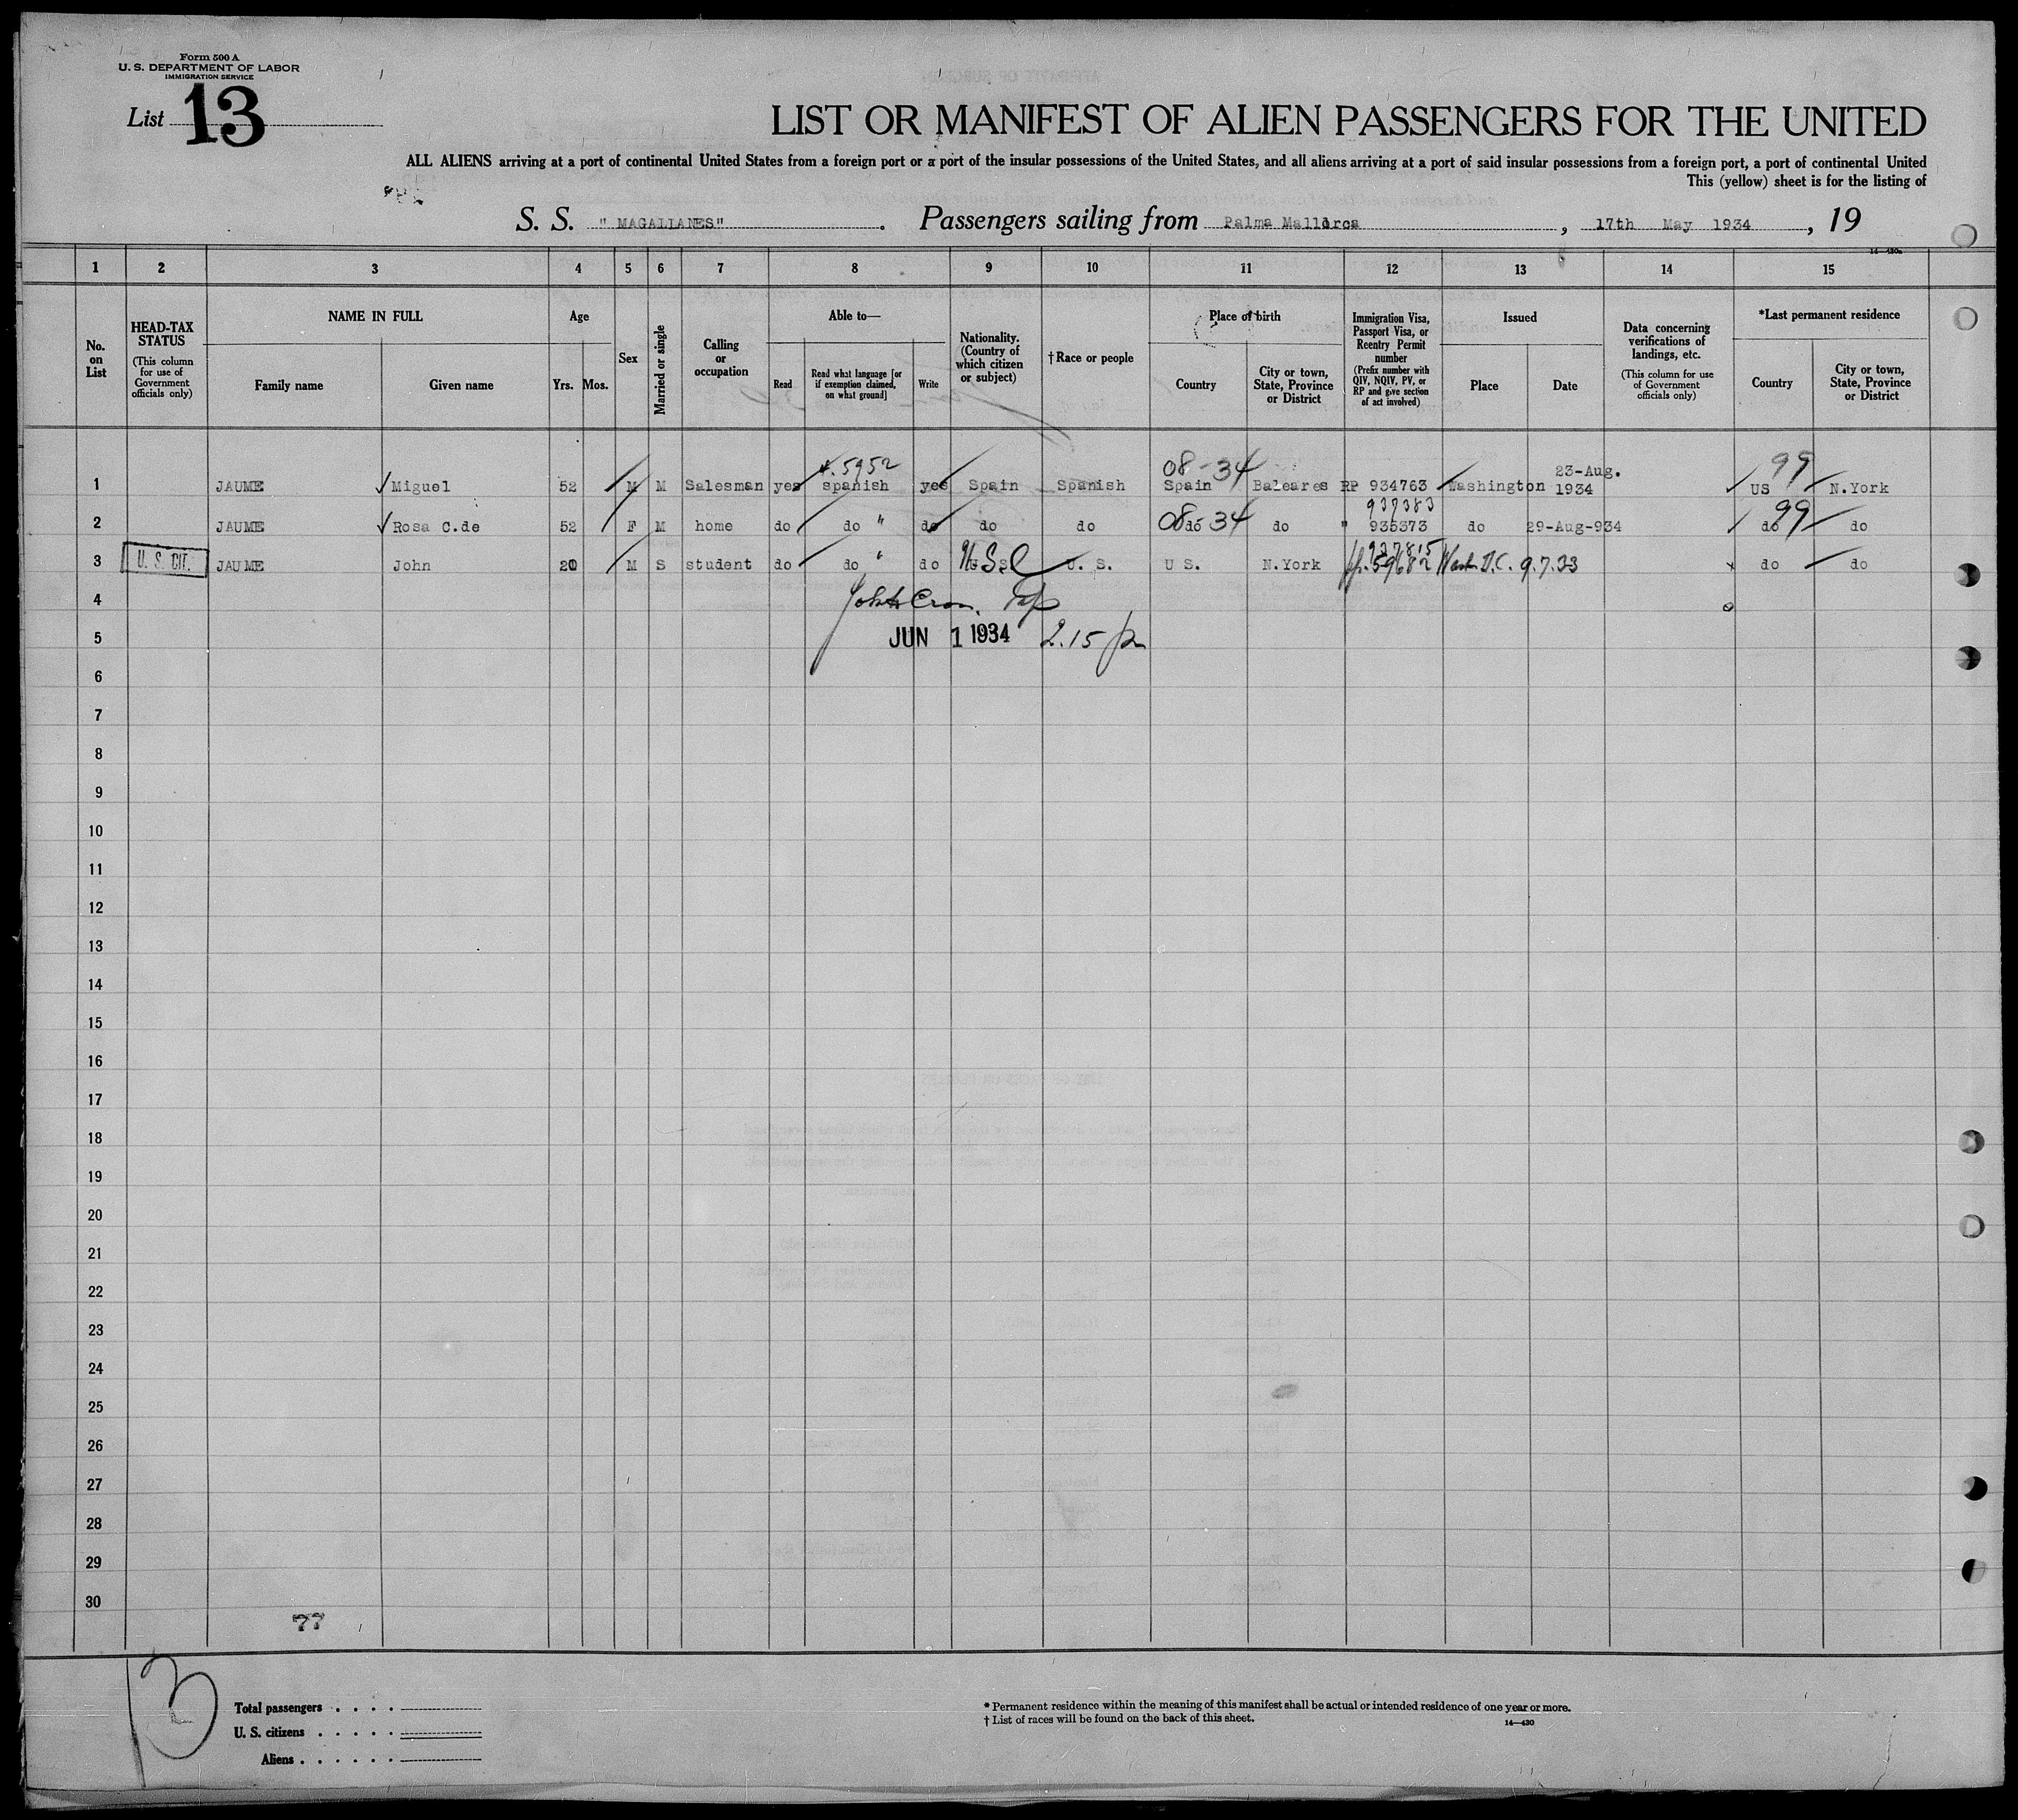 Form 500 A
U. S. DEPARTMENT OF LABOR
IMMIGRATION SERVICE
List 13
LIST OR MANIFEST OF ALIEN PASSENGERS FOR THE UNITED
ALL ALIENS arriving at a port of continental United States from a foreign port or a port of the insular possessions of the United States, and all aliens arriving at a port of said insular possessions from a foreign port, a port of continental United
This (yellow) sheet is for the listing of
S. S. "MAGALLANES". Passengers sailing from Palma Mallorca, 17th May 1934, 19
14—430a
1 2 3 4 5 6 7 8 9 10 11 12 13 14 15
No. on List
HEAD-TAX STATUS
(This column for use of Government officials only)
NAME IN FULL
Family name
Given name
Age
Yrs. Mos.
Sex
Married or single
Calling or occupation
Able to—
Read
Read what language [or if exemption claimed, on what ground]
Write
Nationality. (Country of which citizen or subject)
†Race or people
Place of birth
Country
City or town, State, Province or District
Immigration Visa, Passport Visa, or Reentry Permit number
(Prefix number with QIV, NQIV, PV, or RP and give section of act involved)
Issued
Place
Date
Data concerning verifications of landings, etc.
(This column for use of Government officials only)
*Last permanent residence
Country
City or town, State, Province or District
5952 08-34 23-Aug. 99
1 JAUME Miguel 52 M M Salesman yes spanish yes Spain Spanish Spain Baleares RP 934763 Washington 1934 US N.York
937383
2 JAUME Rosa C.de 52 F M home do do " do do do 08 do 34 do " 935373 do 29-Aug-934 do 99 do
927815
3 U. S. CIT. JAUME John 20 M S student do do " do U.S.C U. S. U S. N.York 59682 Wash. D.C. 9.7.33 do do
4
5 JUN 1 1934 2.15 pm
6
7
8
9
10
11
12
13
14
15
16
17
18
19
20
21
22
23
24
25
26
27
28
29
30
77
13
Total passengers . . . .
U. S. citizens . . . . .
Aliens . . . . . .
* Permanent residence within the meaning of this manifest shall be actual or intended residence of one year or more.
† List of races will be found on the back of this sheet.
14—430